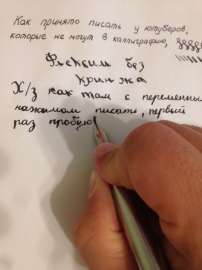 Как принято писать у ютуберов,
которые не могут в каллиграфию,
Флексим без
кринжа
Х/з как там с переменным
нажимом писать, первый
раз пробую